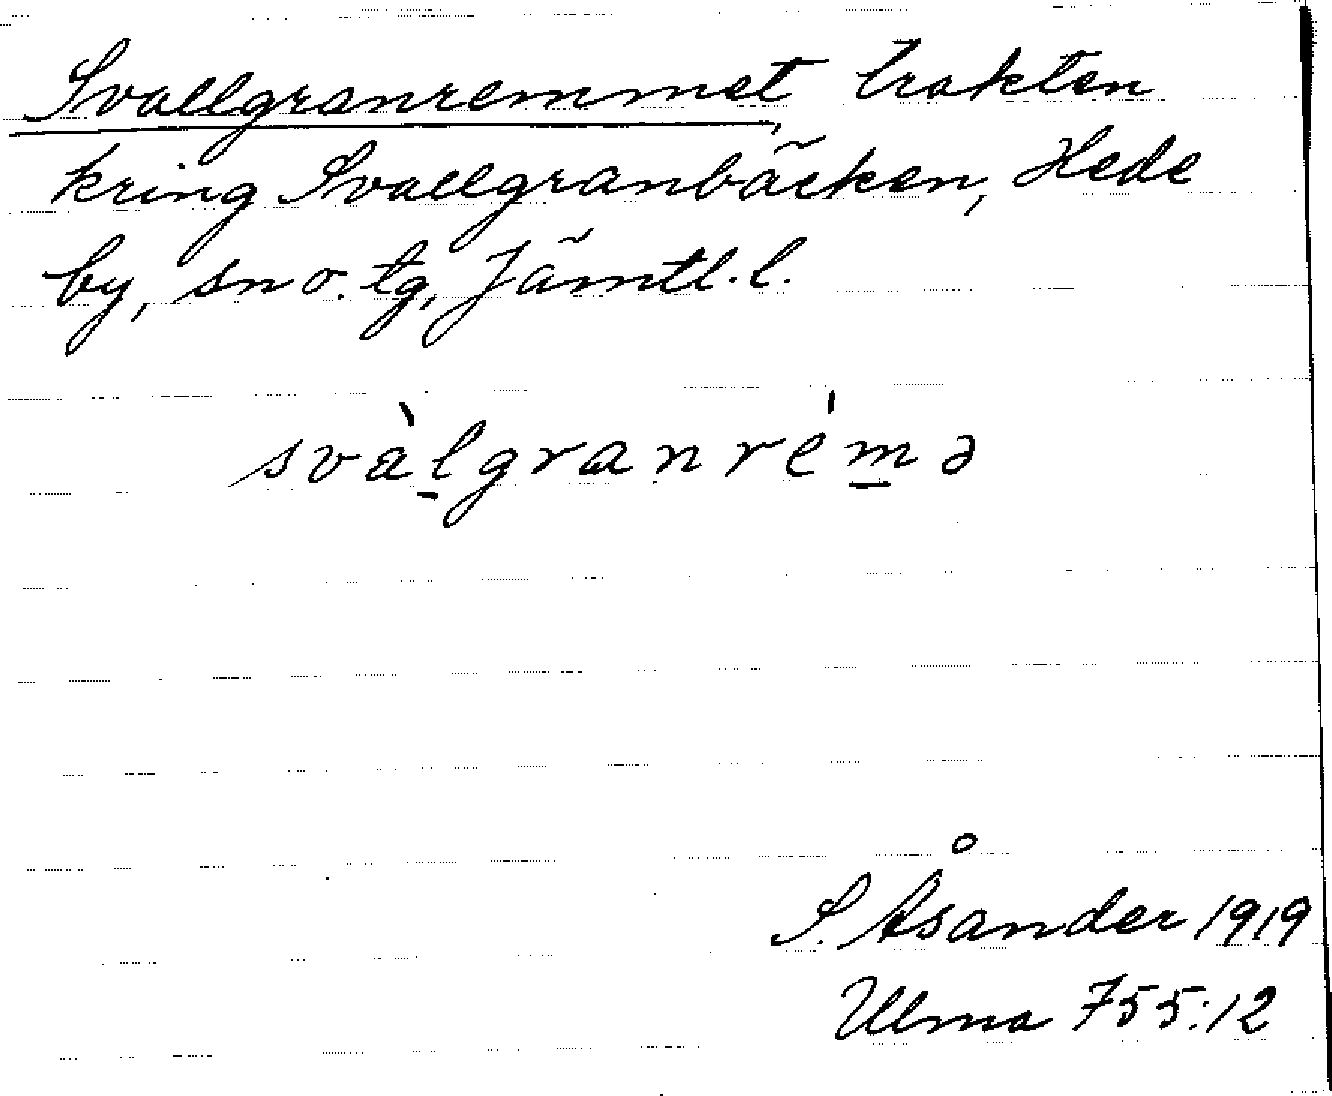 Svallgranremmet, trakten
kring Svallgranbäcken, Hede
by, sn o. tg, Jämtl. l.
svàl̠granrém̠ə
S. Åsander 1919
Ulma 755:12